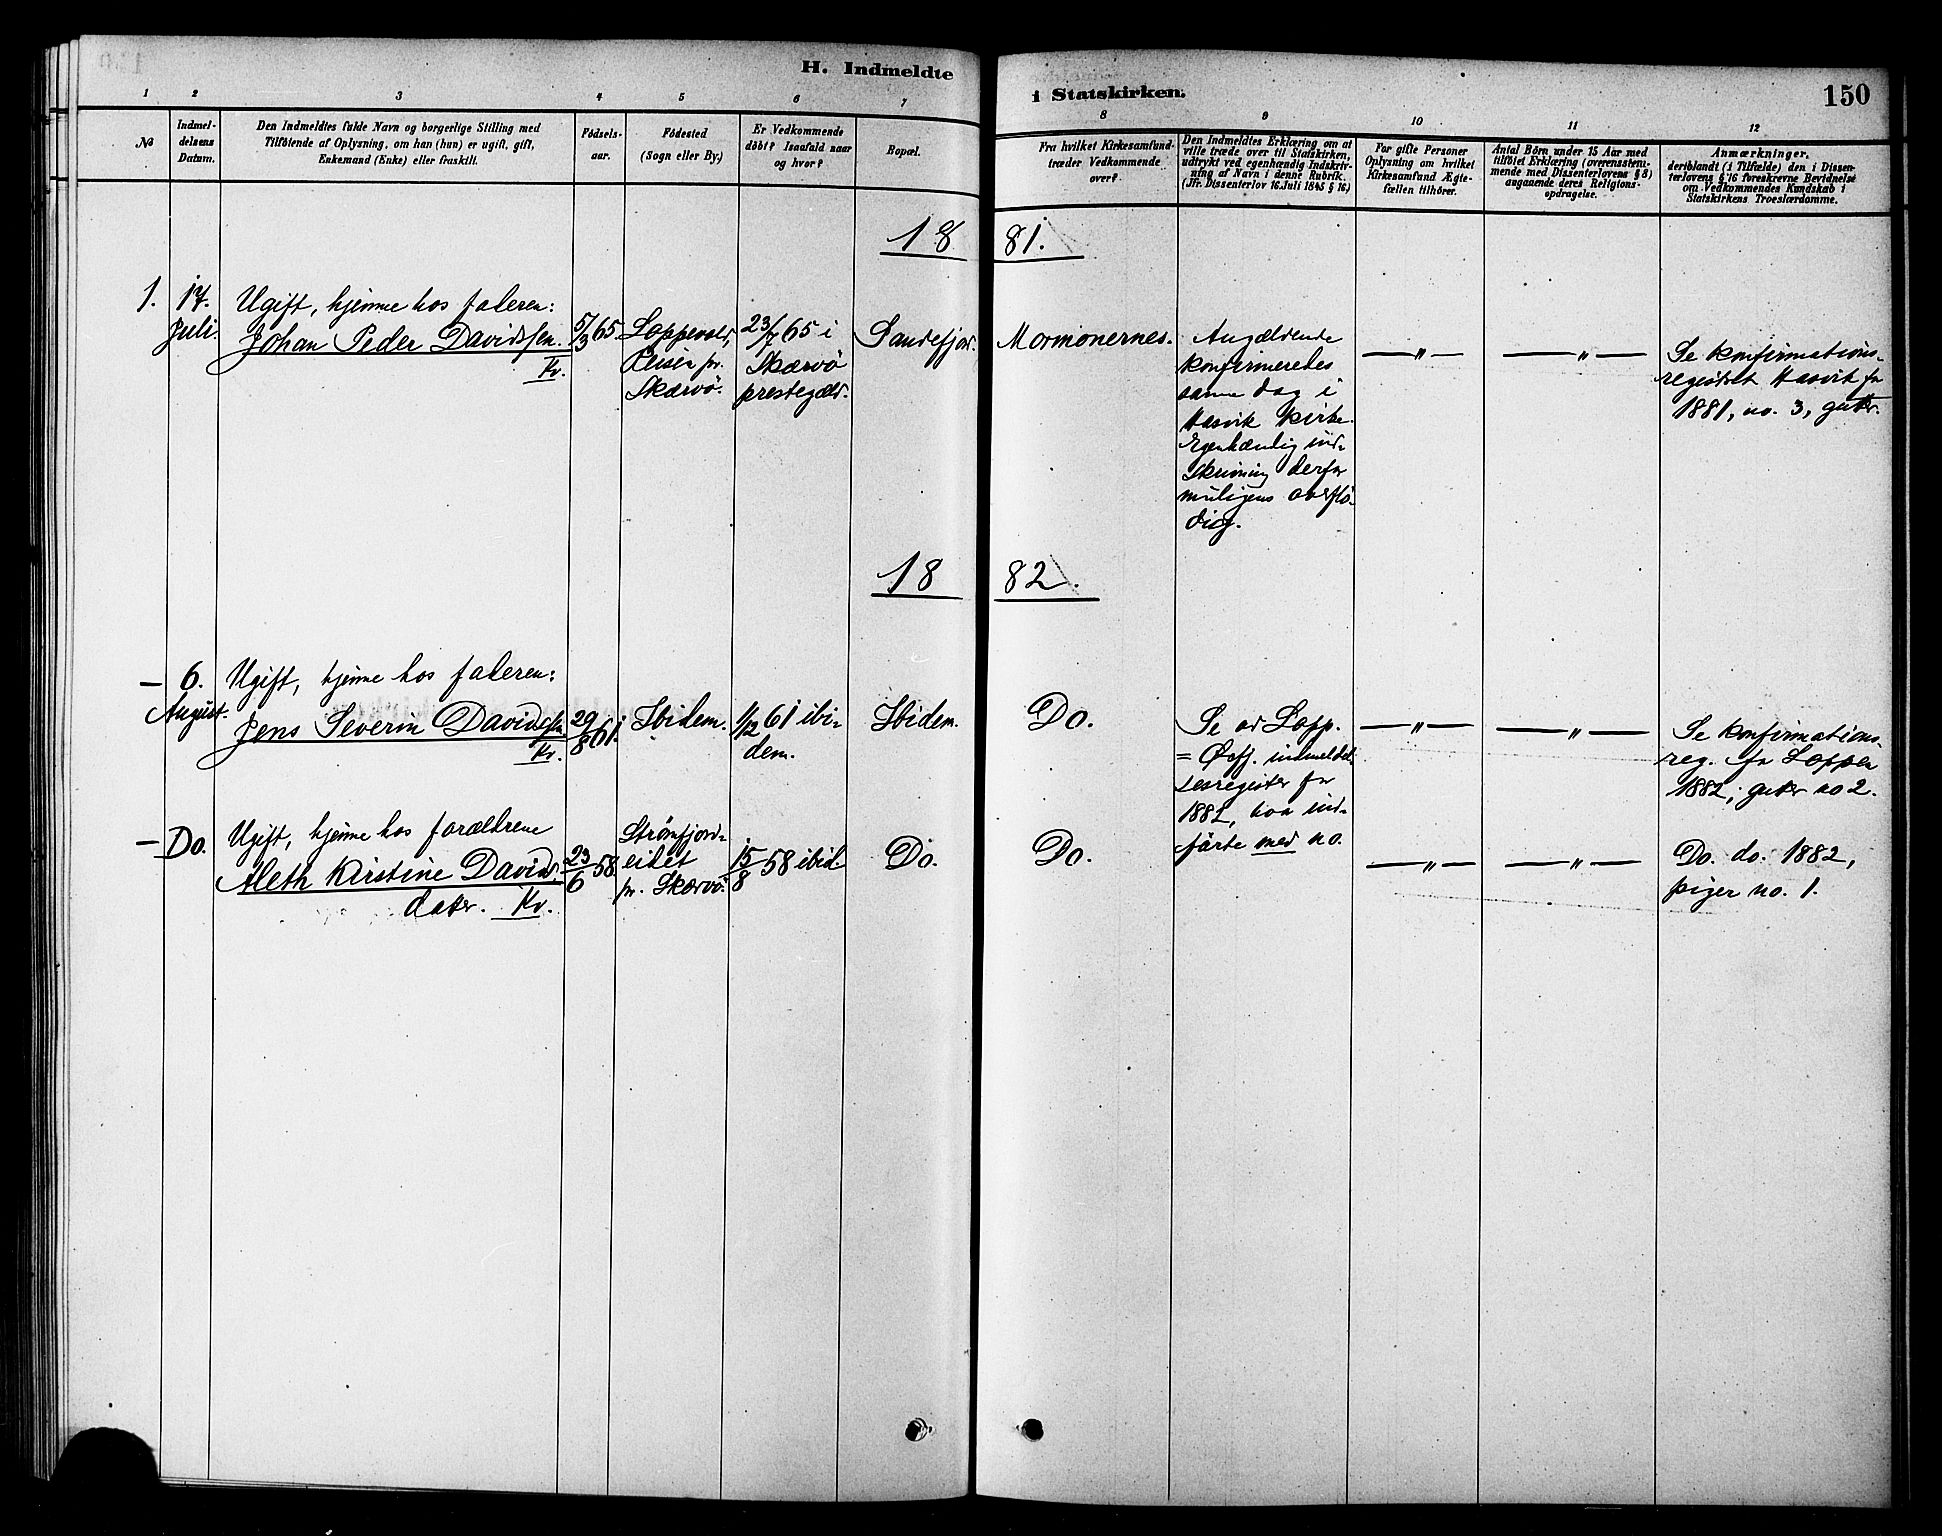 H. Indmeldte
i Statskirken.
150
1
2
3
4
5
6
7
8
9
10
11
12
No
Indmel-
delsens
Datum.
Den Indmeldtes fulde Navn og borgerlige Stilling med
Tilføiende af Oplysning, om han (hun) er ugift, gift,
Enkemand (Enke) eller fraskilt.
Fødsels-
aar.
Fødested
(Sogn eller By.)
Er Vedkommende
døbt? Isaafald naar
og hvor?
Bopæl.
Fra hvilket Kirkesamfund
træder Vedkommende
over?
Den Indmeldtes Erklæring om at
ville træde over til Statskirken,
udtrykt ved egenhændig Indskriv-
ning af Navn i denne Rubrik.
(Jfr. Dissenterlov 16. Juli 1845 § 16.)
For gifte Personer
Oplysning om hvilket
Kirkesamfund Ægte-
fællen tilhører.
Antal Børn under 15 Aar med
tilføiet Erklæring (overensstem-
mende med Dissenterlovens § 8)
angaaende deres Religions-
opdragelse.
Anmærkninger,
deriblandt (i Tilfælde) den i Dissen-
terlovens § 16 foreskrevne Bevidnelse
om Vedkommendes Kundskab i
Statskirkens Troeslærdomme.
18 81.
1.
17.
Juli.
Ugift, hjemme hos faderen:
Johan Peder Davidsen.
Kv.
5/3 65.
pr.
Skærvø.
23/7 65 i
Skærvø
prestegæld.
Sandefjor.
Mormonernes.
Angældende
konfirmeredes
samme dag i
Hasvik kirke.
Egenhændig ind-
skrivning derfor
muligens overflø-
dig.
— " —
— " —
Se konfirmations-
registret Hasvik for
1881, no. 3, gutter.
18 82.
—
6.
August.
Ugift, hjemme hos faderen:
Jens Severin Davidsen.
Kv.
29/8 61.
Ibidem.
1/12 61 ibi-
dem.
Ibidem.
Do.
Se Lopp.
= Øxfj. indmeldel-
sesregister for
1882, hvor ind-
førte med no.
— " —
— " —
Se konfirmations-
reg. for Loppen
1882, gutter no 2.
—
Do.
Ugift, hjemme hos forældrene
Aleth Kirstine Davids-
datter. Kv.
23/6 58.
Strømfjord-
eidet
pr. Skærvø.
15/8 58 ibid.
Do.
Do.
— " —
— " —
Do. do. 1882,
piger no. 1.